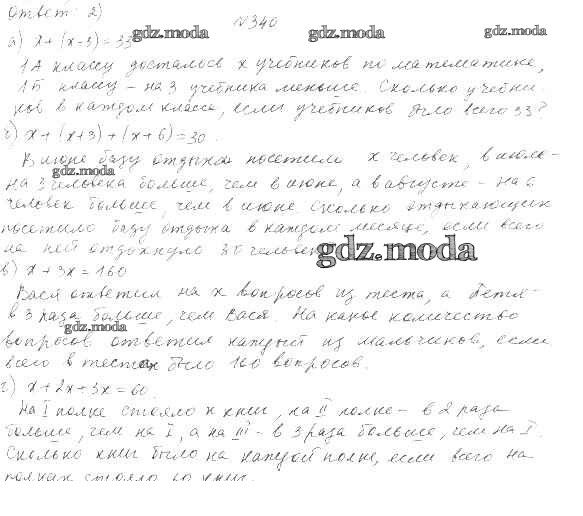 Ответ: 2)
№340
а) x + (x-3) = 33
gdz.moda gdz.moda gdz.moda
1А классу досталось x учебников по математике,
1Б классу - на 3 учебника меньше. Сколько учебни-
ков в каждом классе, если учебников было всего 33?
б) x + (x+3) + (x+6) = 30.
В июне базу отдыха посетили x человек, в июле-
gdz.moda
на 3 человека больше, чем в июне, а в августе - на 6
человек больше, чем в июне. Сколько отдыхающих
посетило базу отдыха в каждом месяце, если всего
на ней отдохнуло 30 человек
gdz.moda
в) x + 3x = 160
Вася ответил на x вопросов из теста, а Петя-
в 3 раза больше, чем Вася. На какое количество
gdz.moda
вопросов ответил каждый из мальчиков, если
всего в тестах было 160 вопросов.
г) x + 2x + 3x = 60.
На I полке стояло x книг, на II полке - в 2 раза
больше, чем на I, а на III - в 3 раза больше, чем на I.
Сколько книг было на каждой полке, если всего на
полках стояло 60 книг.